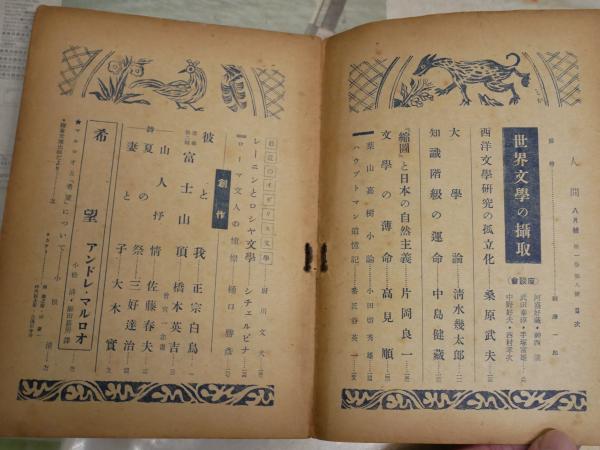 人間 八月號 第一卷第八號 目次
世界文學の攝取
(座談會)
河盛好藏・神西淸
武田泰淳・手塚富雄
中野好夫・西村孝次
西洋文學硏究の孤立化 桑原武夫
大學論 淸水幾太郎
知識階級の運命 中島健藏
『縮圖』と日本の自然主義 片岡良一
文學の薄命 高見順
葉山嘉樹小論 小田切秀雄
ハウプトマン追憶記
最近のイギリス文學
レーニンとロシヤ文學 シチェルビナ
ローマ文人の憤懣 樋口勝彦
創作
彼と我 正宗白鳥
富士山頂 橋本英吉
山人抒情 佐藤春夫
詩 夏の祭 三好達治
妻と子 大木實
希望 アンドレ・マルロオ
小松淸
★マルロオと『希望』について 小松淸